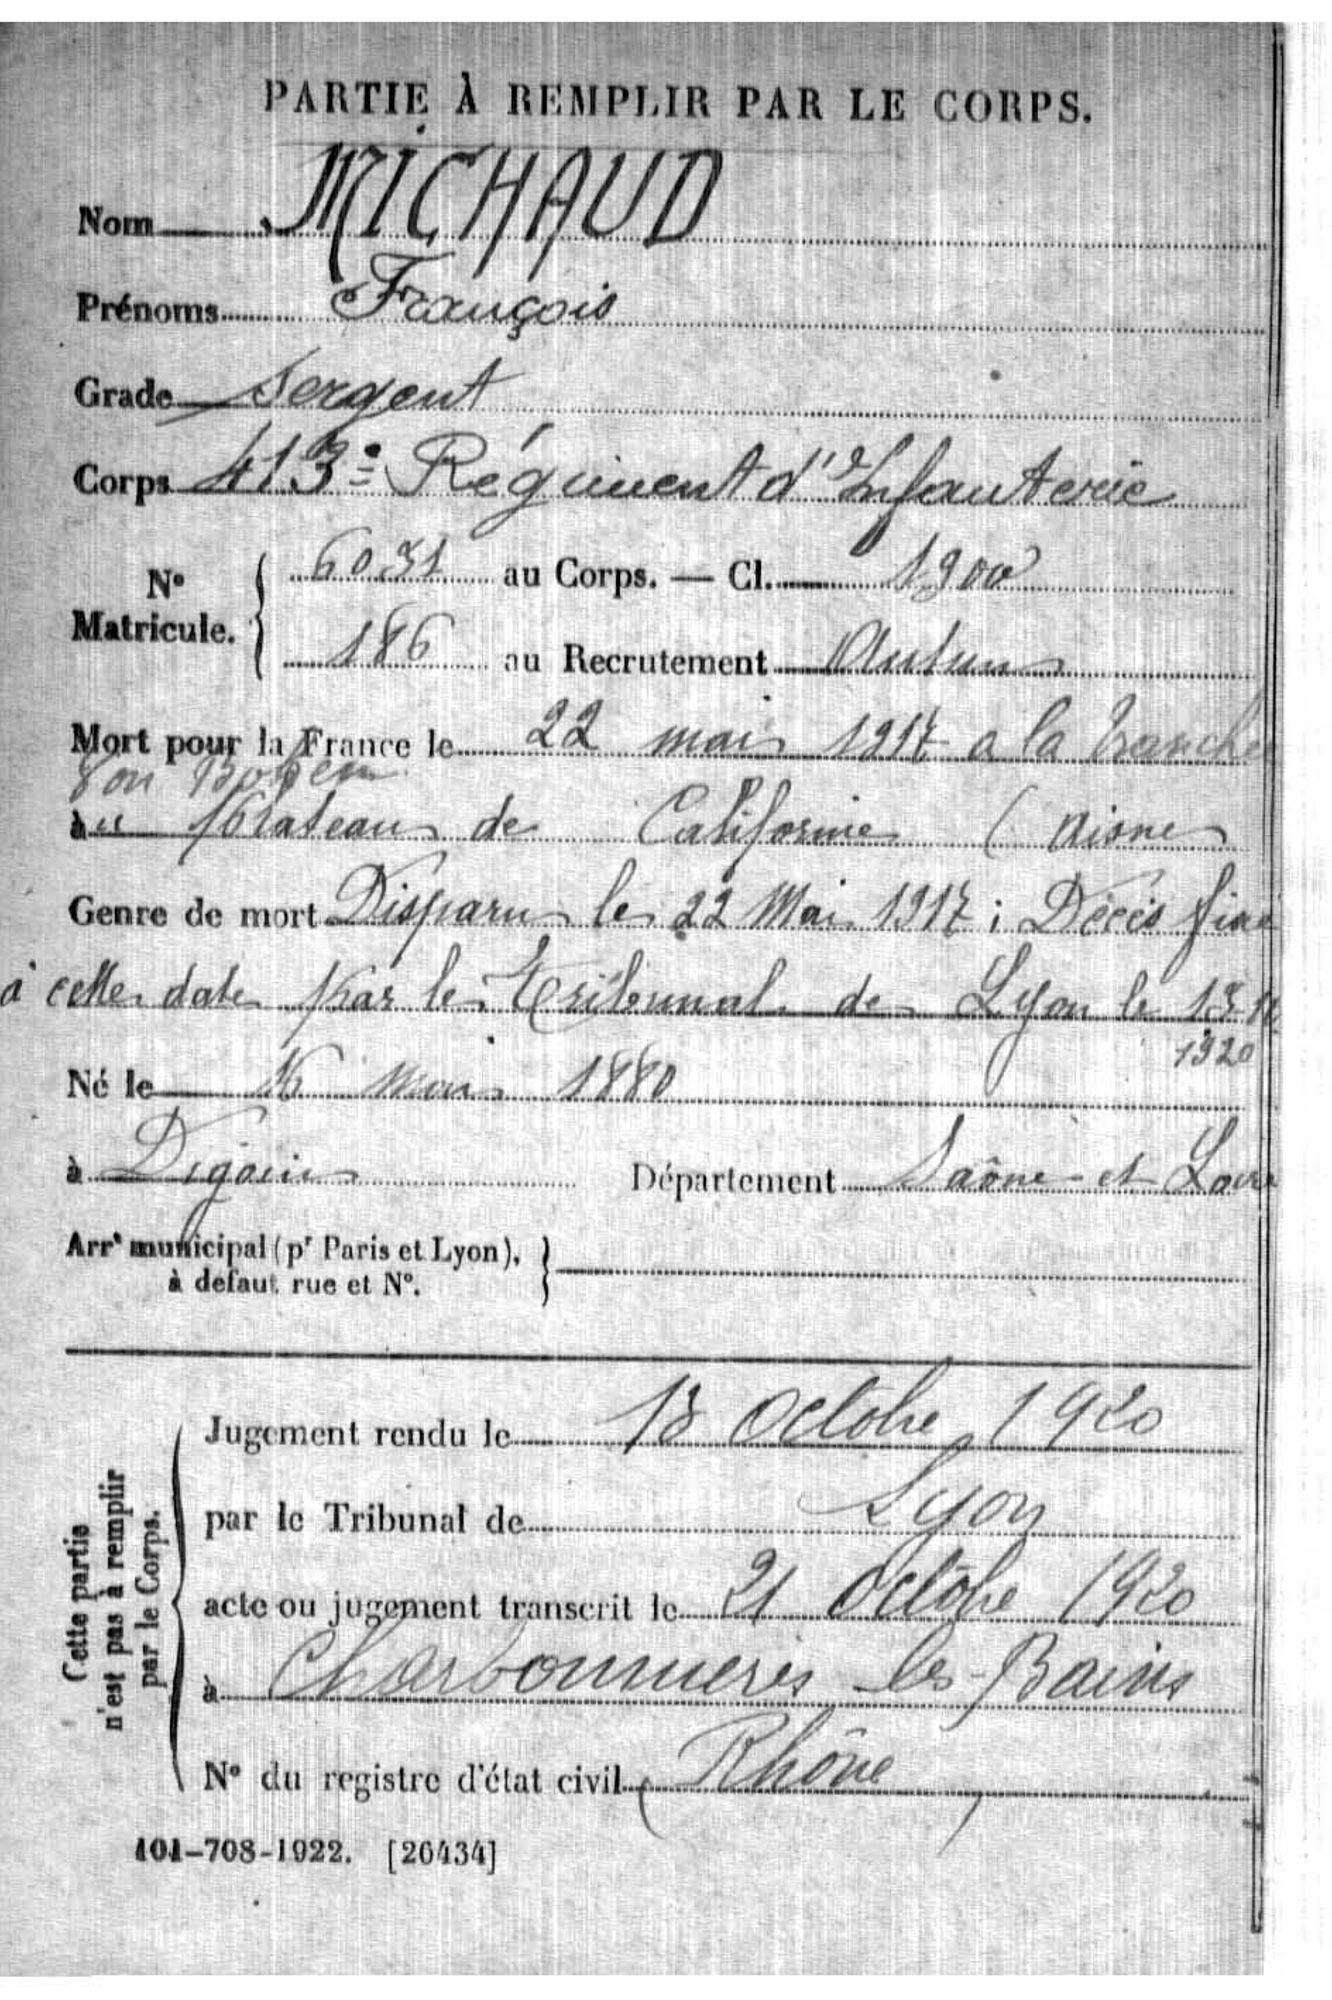 PARTIE À REMPLIR PAR LE CORPS.
Nom MICHAUD
Prénoms François
Grade Sergent
Corps 413e Régiment d'Infanterie
N° Matricule. 6031 au Corps. — Cl. 1900
186 au Recrutement Autun
Mort pour la France le 22 mai 1917 a la Tranchée
Von
à u Plateau de Californie ( Aisne
Genre de mort Disparu le 22 Mai 1917 ; Décès fixé
à cette date par le Tribunal de Lyon le 13
1920
Né le 16 mai 1880
à Digoin Département Saône-et Loire
Arrt municipal (pr Paris et Lyon),
à défaut rue et N°.
Cette partie
n'est pas à remplir
par le Corps.
Jugement rendu le 13 Octobre 1920
par le Tribunal de Lyon
acte ou jugement transcrit le 21 Octobre 1920
à Charbonnieres les-Bains
N° du registre d'état civil (Rhône)
101-708-1922. [26434]